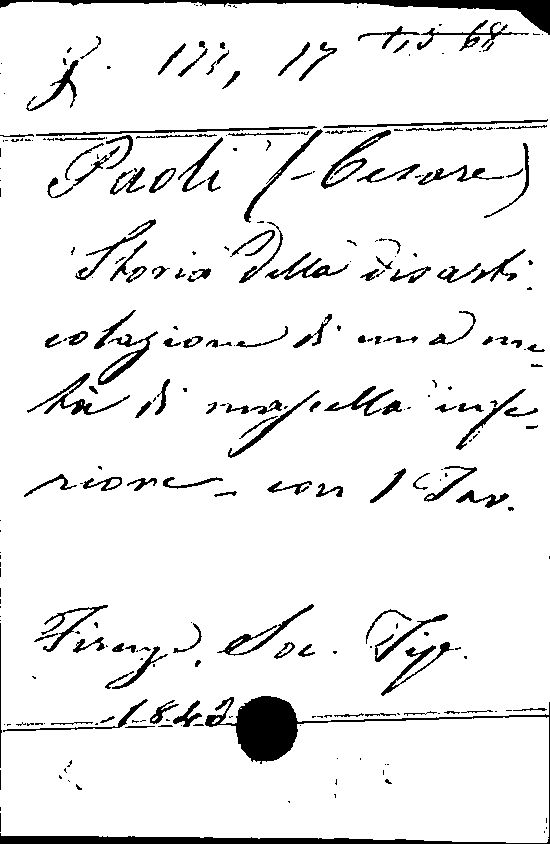 177, 17
Paoli (Cesare)
Storia della disarti-
colazione di una me-
tà di mascella infe-
riore - con 1 Tav.
Firenze, Soc. Tip.